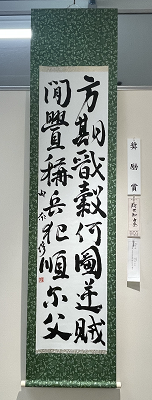 方期戢穀何圖逆賊
間釁稱兵犯順尒父
奨励賞